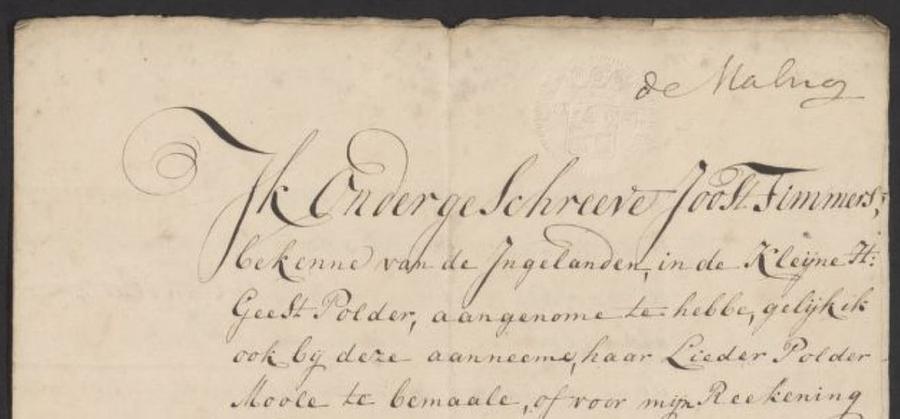 de Maling
Ik OndergeSchreeve Joost Timmers,
bekenne van de Ingelanden, in de Kleÿne H:
GeeSt Polder, aangenome te hebbe, gelijk ik
ook bÿ deze aanneeme, haar Lieder Polder
Moole te bemaale, of voor mijn Reekening